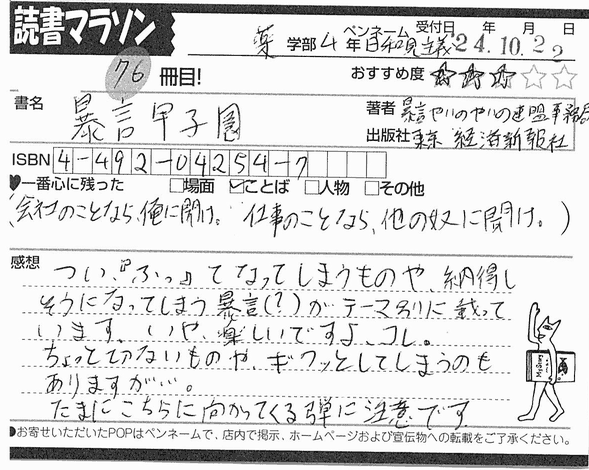 読書マラソン
薬 学部 4 年 ペンネーム 日和見主義 受付日 年 月 日 24.10.22
76 冊目! おすすめ度 ★★★☆☆
書名 暴言甲子園 著者 暴言やいのやいの連盟事務局
出版社 東京経済新報社
ISBN 4-492-04254-7
♥一番心に残った □場面 ☑ことば □人物 □その他
(会社のことなら、俺に聞け。 仕事のことなら、他の奴に聞け。)
感想
つい、『ふっ』てなってしまうものや、納得し
そうになってしまう暴言(?)がテーマ別に載って
います。いや、楽しいですよ、コレ。
ちょっと切ないものや、ギクッとしてしまうのも
ありますが…。
たまにこちらに向かってくる弾に注意です
●お寄せいただいたPOPはペンネームで、店内で掲示、ホームページおよび宣伝物への転載をご了承ください。